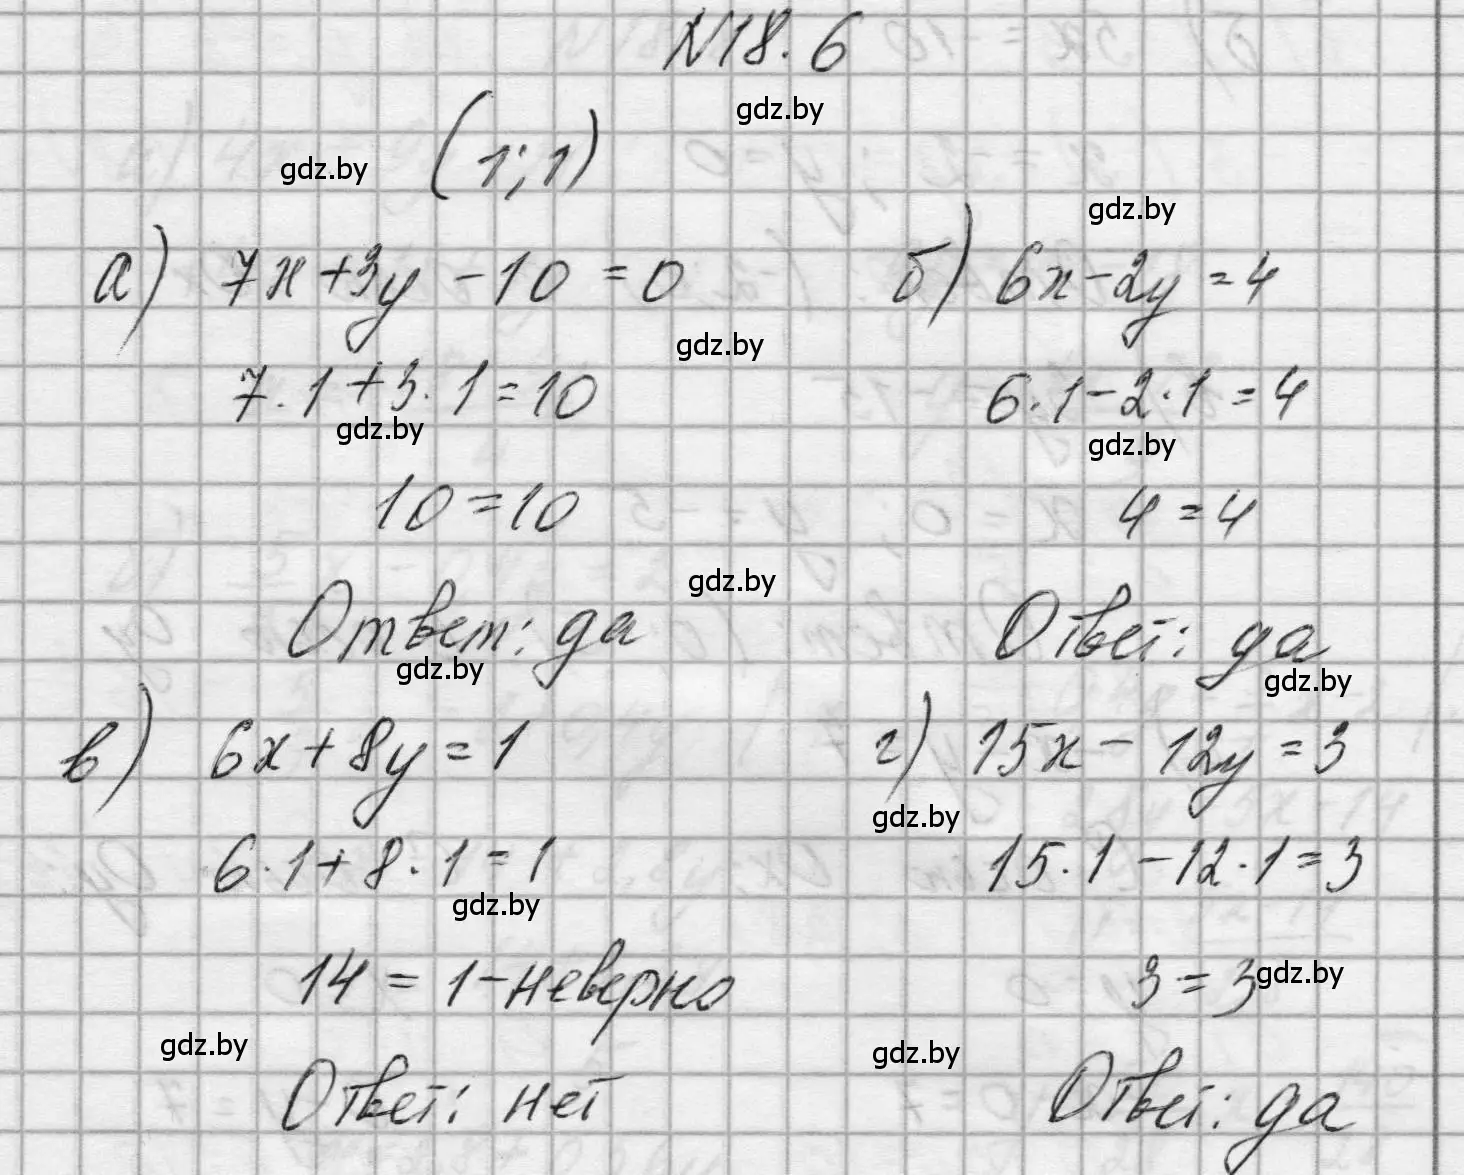 №18.6
gdz.by
gdz.by (1;1)
gdz.by
а) 7x+3y-10=0
б) 6x-2y=4
gdz.by
7·1+3·1=10
6·1-2·1=4
gdz.by
gdz.by
10=10
4=4
gdz.by
Ответ: да
Ответ: да
gdz.by
gdz.by
в) 6x+8y=1
г) 15x-12y=3
gdz.by
6·1+8·1=1
15·1-12·1=3
gdz.by
14=1-неверно
3=3
gdz.by
gdz.by
gdz.by
Ответ: нет
Ответ: да